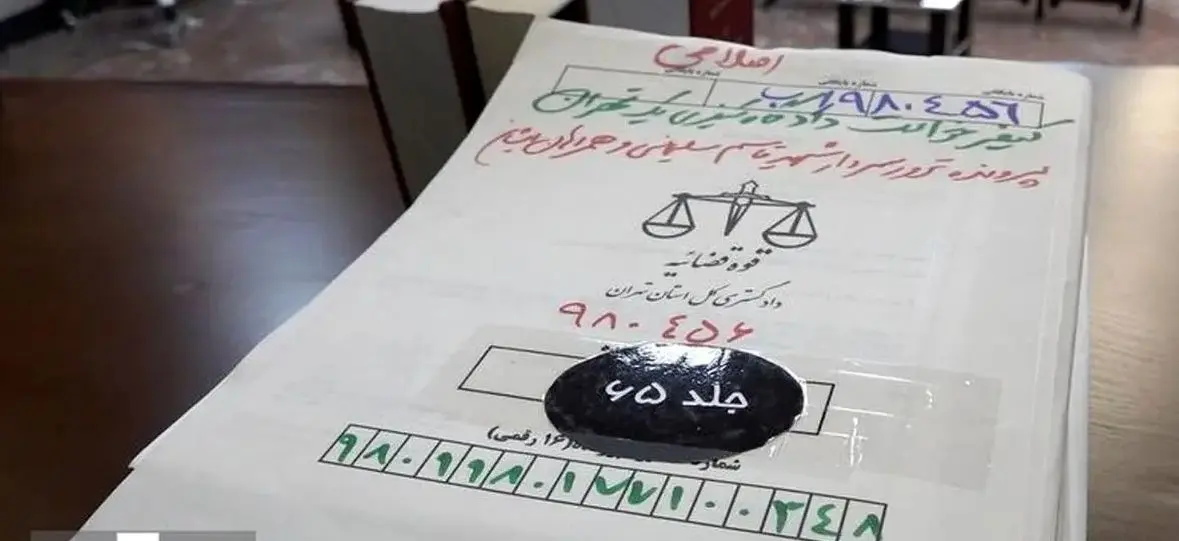 اصلاحی
شماره بایگانی شماره بایگانی شماره بایگانی
۹۸۰٤۵۶
کیفرخواست دادگاه کیفری یک تهران
پرونده ترور سردار شهید قاسم سلیمانی و همراهان ایشان
قوه قضائیه
دادگستری کل استان تهران
۹۸۰٤۵۶
جلد ۶۵
شماره (۱۶ رقمی)
۹۸۰۹۹۸۰۱۷۷۱۰۰۳٤۸